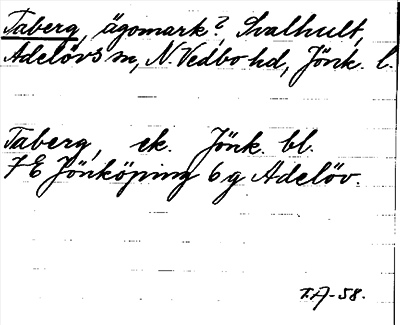 Taberg, ägomark?, Svalhult,
Adelövs sn, N. Vedbo hd, Jönk. l.
Taberg, ek. Jönk. bl.
7E Jönköping 6g Adelöv.
T.A-58.